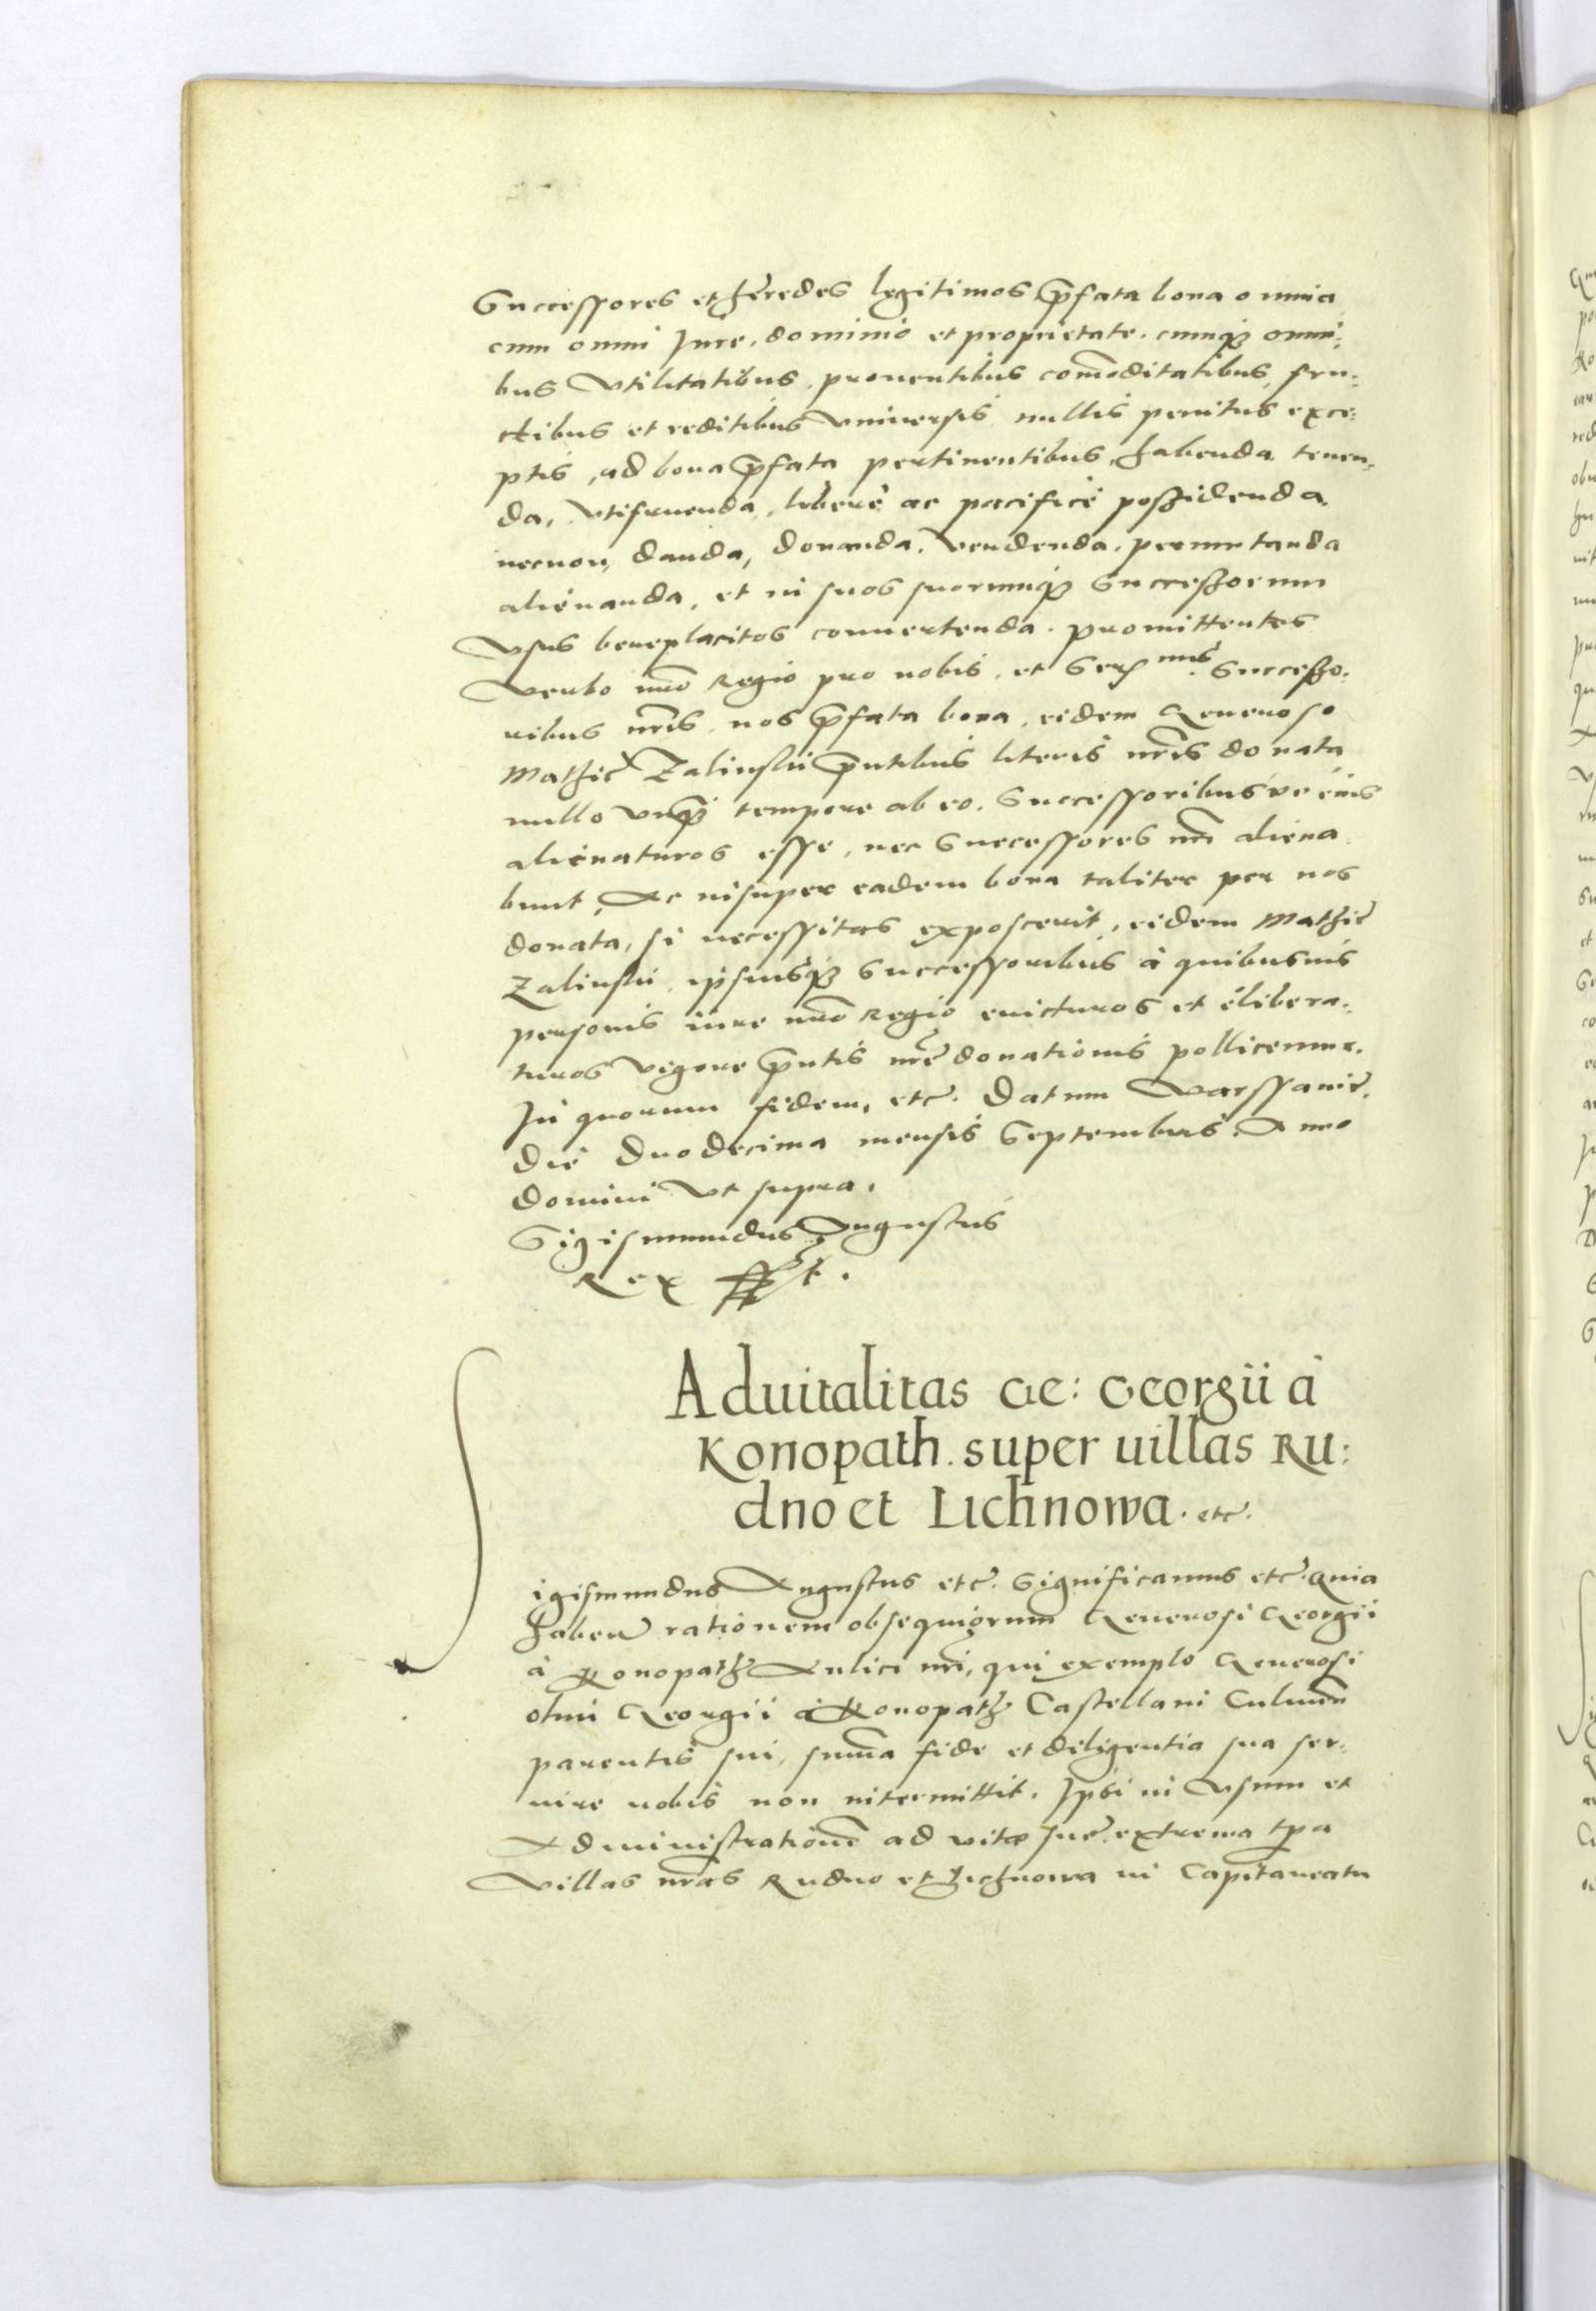 Successores et heredes legitimos p̃fata bona omnia
cum omni Jure, dominio et proprietate, cumq; omni:
bus vtilitatibus, prouentibus com̃oditatibus, fru:
ctibus et reditibus vniuersis nullis penitus exce:
ptis, ad bona p̃fata pertinentibus, habenda, tenen:
da, vtifruenda, liberè ac pacificè possidenda.
necnon, danda, donanda, vendenda, permutanda
alienanda, et in suos suorumq; Successorum
vsus beneplacitos conuertenda. promittentes
verbo nrõ Regio pro nobis, et Ser^mis Successo:
ribus nr̃is, nos p̃fata bona, eidem Generoso
Mathię Zalinskii p̃ntibus literis nr̃is donata
nullo vnq̃ tempore ab eo, Successoribus ve eius
alienaturos esse, nec Successores nr̃i aliena
bunt, Ac insuper eadem bona taliter per nos
donata, si necessitas exposcerit, eidem Mathię
Zalinskii, ipsiusq; Successoribus à quibusuis
personis iure nrõ Regio euicturos et elibera:
turos vigore p̃ntis nr̃ę donationis pollicemur.
In quorum fidem, etc. Datum Warssauię,
die duodecima mensis Septembris Anno
domini vt supra.
Sigismundus Augustus
Rex sst.
Aduitalitas Ge: Georgii à
Konopath super uillas Ru:
dno et Lichnowa. etc.
Sigismundus Augustus etc. Significamus etc. Quia
haben̄ rationem obsequiorum Generosi Georgii
à Konopath Aulici nr̃i, qui exemplo Generosi
olim Georgii à Konopath Castellani Culmen̄
parentis sui, sum̃a fide et diligentia sua ser:
uire nobis non intermittit. Ipsi in vsum et
Administrationẽ ad vitę suę extrema tp̃a
villas nr̃as Rudno et Lichnowa in Capitaneatu